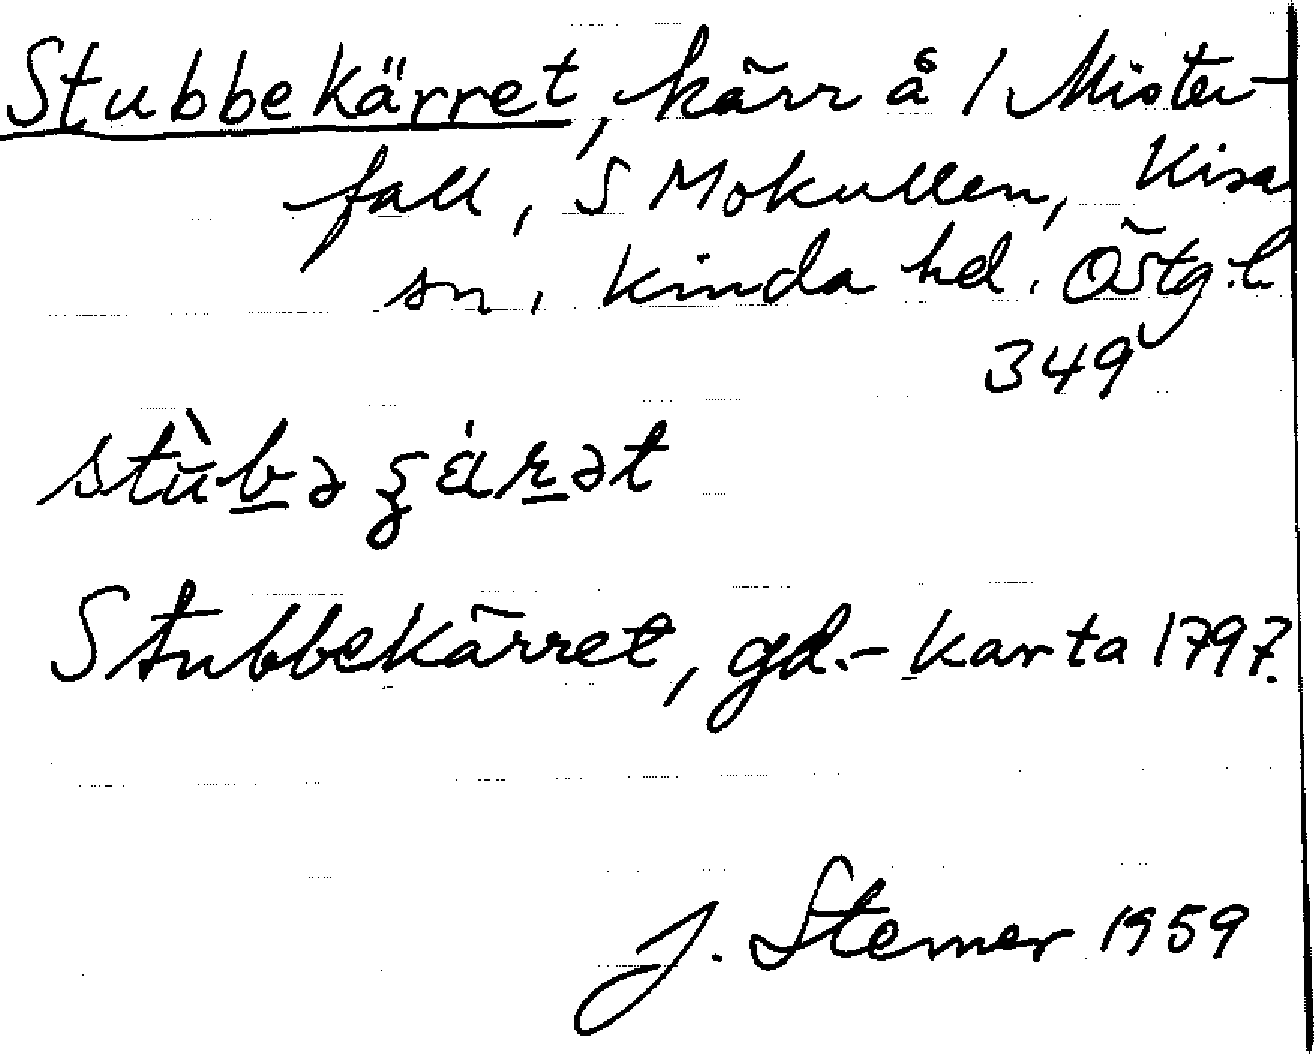 Stubbekärret, kärr å / Mister-
fall, S Mokullen, Kisa
sn, Kinda hd. Östg. l.
349
Stubbekärret, gd.- karta 1797.
J. Sterner 1959